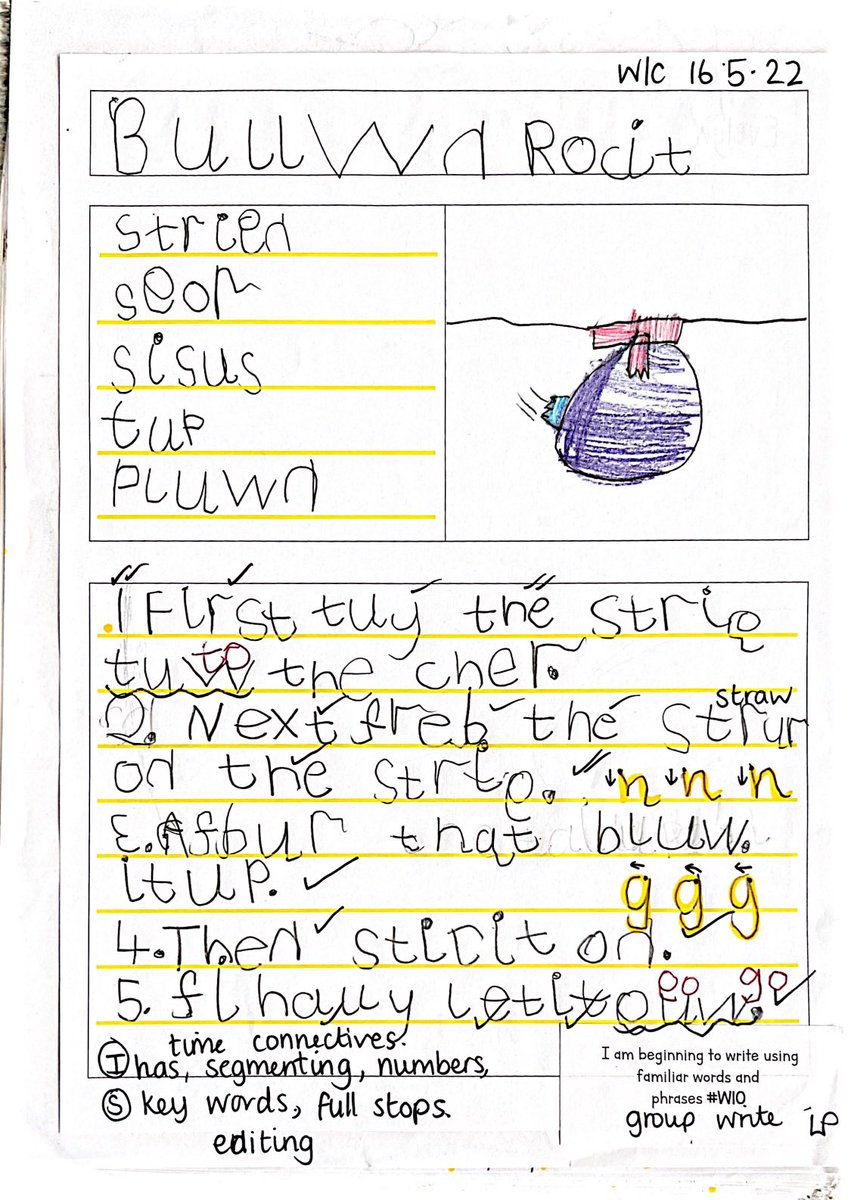 W/C 16.5.22
Bulloon Rocit
strien
seor
sisus
tup
pluwn
1 First tuy the strig
tuw to the cher.
straw
2. Next freb the strur
on the strig. n n n
3. Afbur that bluw.
it up.
g g g
4. Then sticit on.
5. flhauy letitouw. go go
time connectives.
I has, segmenting, numbers,
S key words, full stops.
editing
I am beginning to write using
familiar words and
phrases #W10
group write